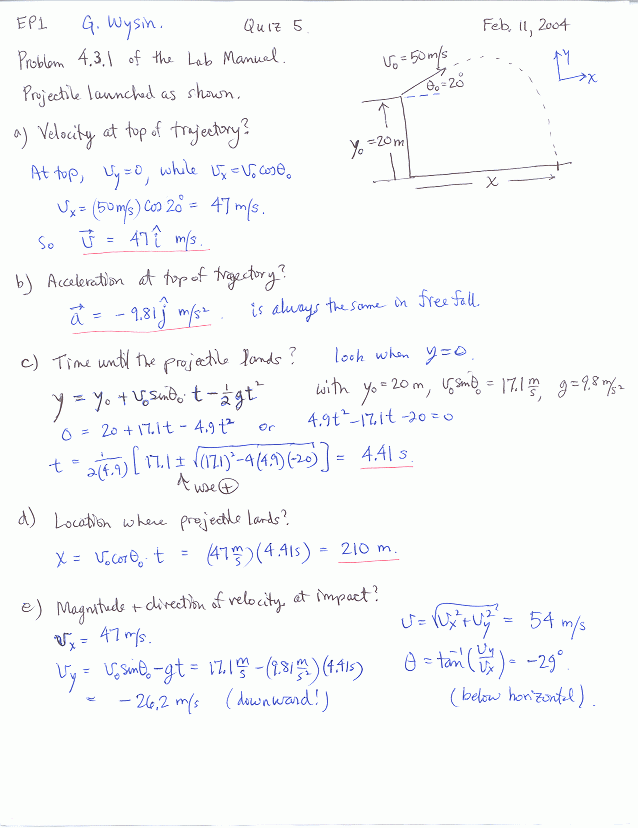 EP1 G. Wysin. Quiz 5. Feb. 11, 2004
Problem 4.3.1 of the Lab Manuel.
Projectile launched as shown.
v₀ = 50 m/s
θ₀ = 20°
y₀ = 20 m
x
y
x
a) Velocity at top of trajectory?
At top, v_y = 0, while v_x = v₀ cosθ₀
v_x = (50 m/s) cos 20° = 47 m/s.
So v⃗ = 47 î m/s.
b) Acceleration at top of tragectory?
a⃗ = -9.81 ĵ m/s². is always the same in free fall.
c) Time until the projectile lands? look when y = 0.
y = y₀ + v₀ sinθ₀ · t - ½gt² with y₀ = 20 m, v₀ sinθ₀ = 17.1 m/s, g = 9.8 m/s²
0 = 20 + 17.1t - 4.9t² or 4.9t² - 17.1t - 20 = 0
t = 1/2(4.9) [17.1 ± √((17.1)² - 4(4.9)(-20))] = 4.41 s
↑ use ⊕
d) Location where projectile lands?
x = v₀ cosθ₀ · t = (47 m/s)(4.41s) = 210 m.
e) Magnitude + direction of velocity at impact?
v_x = 47 m/s.
v_y = v₀ sinθ₀ - gt = 17.1 m/s - (9.81 m/s²)(4.41s)
= -26.2 m/s (downward!)
v = √(v_x² + v_y²) = 54 m/s
θ = tan⁻¹(v_y/v_x) = -29°
(below horizontal).